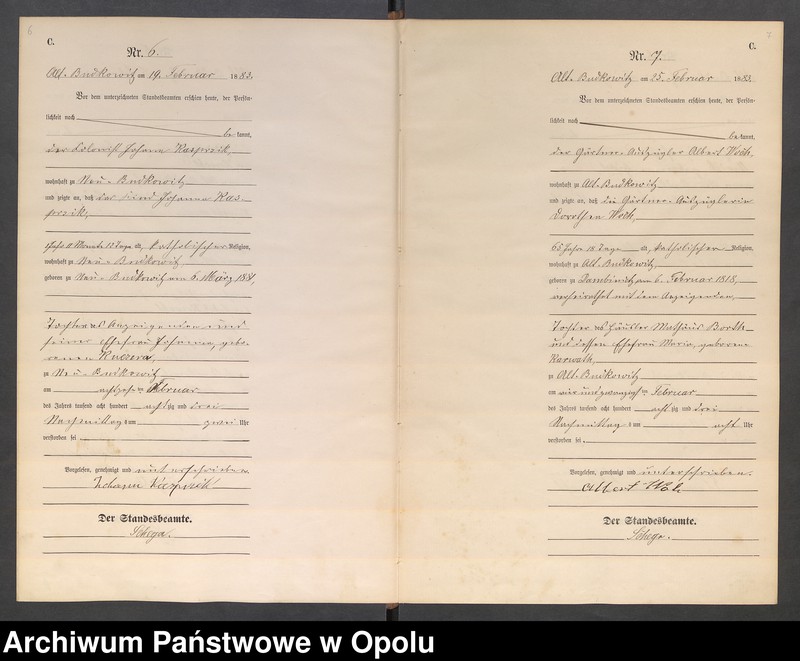 6
C.
Nr. 6.
Alt-Budkowitz am 19. Februar 1883.
Vor dem unterzeichneten Standesbeamten erschien heute, der Persön-
lichkeit nach
bekannt,
der Colonist Johann Kasprzik,
wohnhaft zu Neu-Budkowitz
und zeigte an, daß das Kind Johanna Kas-
przik,
11 Monate 12 Tage alt, katholischer Religion,
wohnhaft zu Neu-Budkowitz,
geboren zu Neu-Budkowitz am 6. März
Tochter des Anzeigenden und
seiner Ehefrau Johanna, gebo-
renen Kuczera,
zu Neu-Budkowitz
am achtzehn ten Februar
des Jahres tausend acht hundert achtzig und drei
Nachmittags um zwei Uhr
verstorben sei
Vorgelesen, genehmigt und unterschrieben.
Johann Kasprzik
Der Standesbeamte.
7
C.
Nr. 7.
Alt-Budkowitz am 25. Februar 1883.
Vor dem unterzeichneten Standesbeamten erschien heute, der Persön-
lichkeit nach
bekannt,
der Gärtner-Auszügler Albert Woch,
wohnhaft zu Alt-Budkowitz
und zeigte an, daß die Gärtner-Auszüglerin
Dorothea Woch,
65 Jahre 18 Tage alt, katholischer Religion,
wohnhaft zu Alt-Budkowitz,
geboren zu Dambinietz am 6. Februar 1818,
verheirathet mit dem Anzeigenden,
Tochter des Häusler Mathäus
und dessen Ehefrau Maria, geborene
Karwath,
zu Alt-Budkowitz
am vier und zwanzigsten Februar
des Jahres tausend acht hundert achtzig und drei
Nachmittags um acht Uhr
verstorben sei.
Vorgelesen, genehmigt und unterschrieben.
Albert Woch
Der Standesbeamte.
Archiwum Państwowe w Opolu